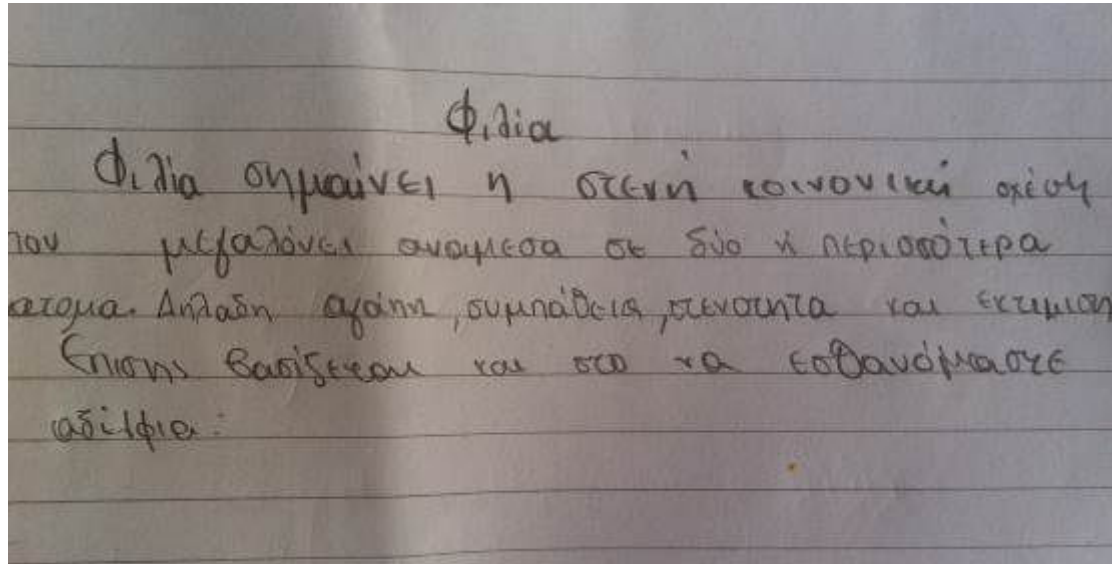 Φιλία
Φιλία σημαίνει η στενή κοινονική σχέση
που μεγαλόνει αναμεσα σε δύο ή περισσότερα
ατομα. Δηλαδη αγάπη, συμπάθεια, στενοτητα και εκτιμιση
Επισης βασίζεται και στο να εσθανόμαστε
αδέλφια.